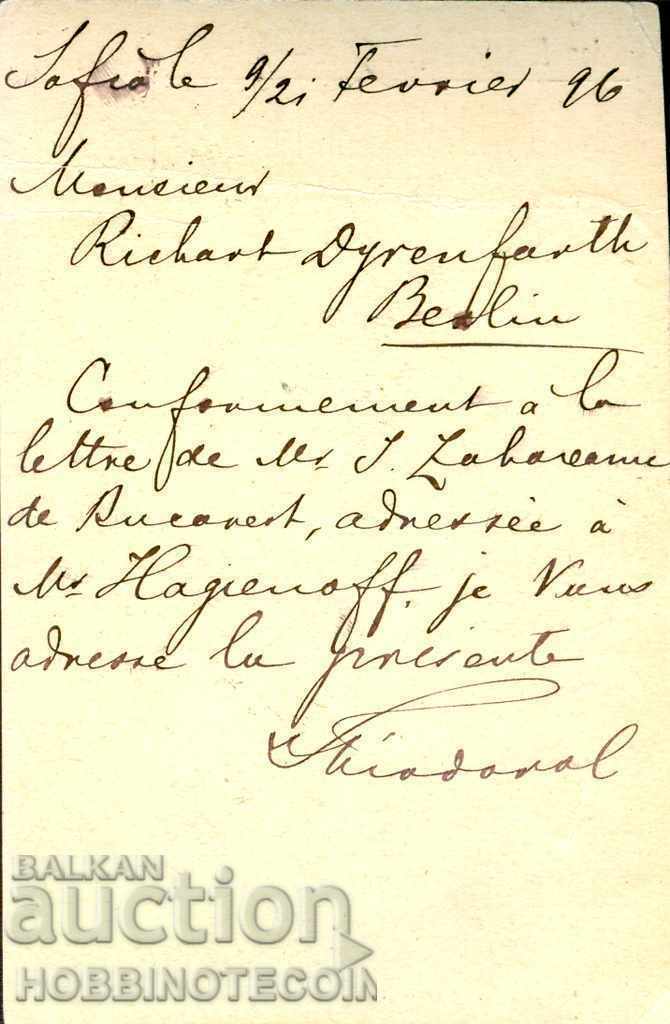 Sofia le 9/21 Fevrier 96
Monsieur
Richart Dyrenfarth
Berlin
Conformement à la
lettre de Mr J. Zahareanu
de Bucarest, adressée à
Mr Hagienoff, je Vous
adresse la présente
BALKAN
auction
HOBBINOTECOIN